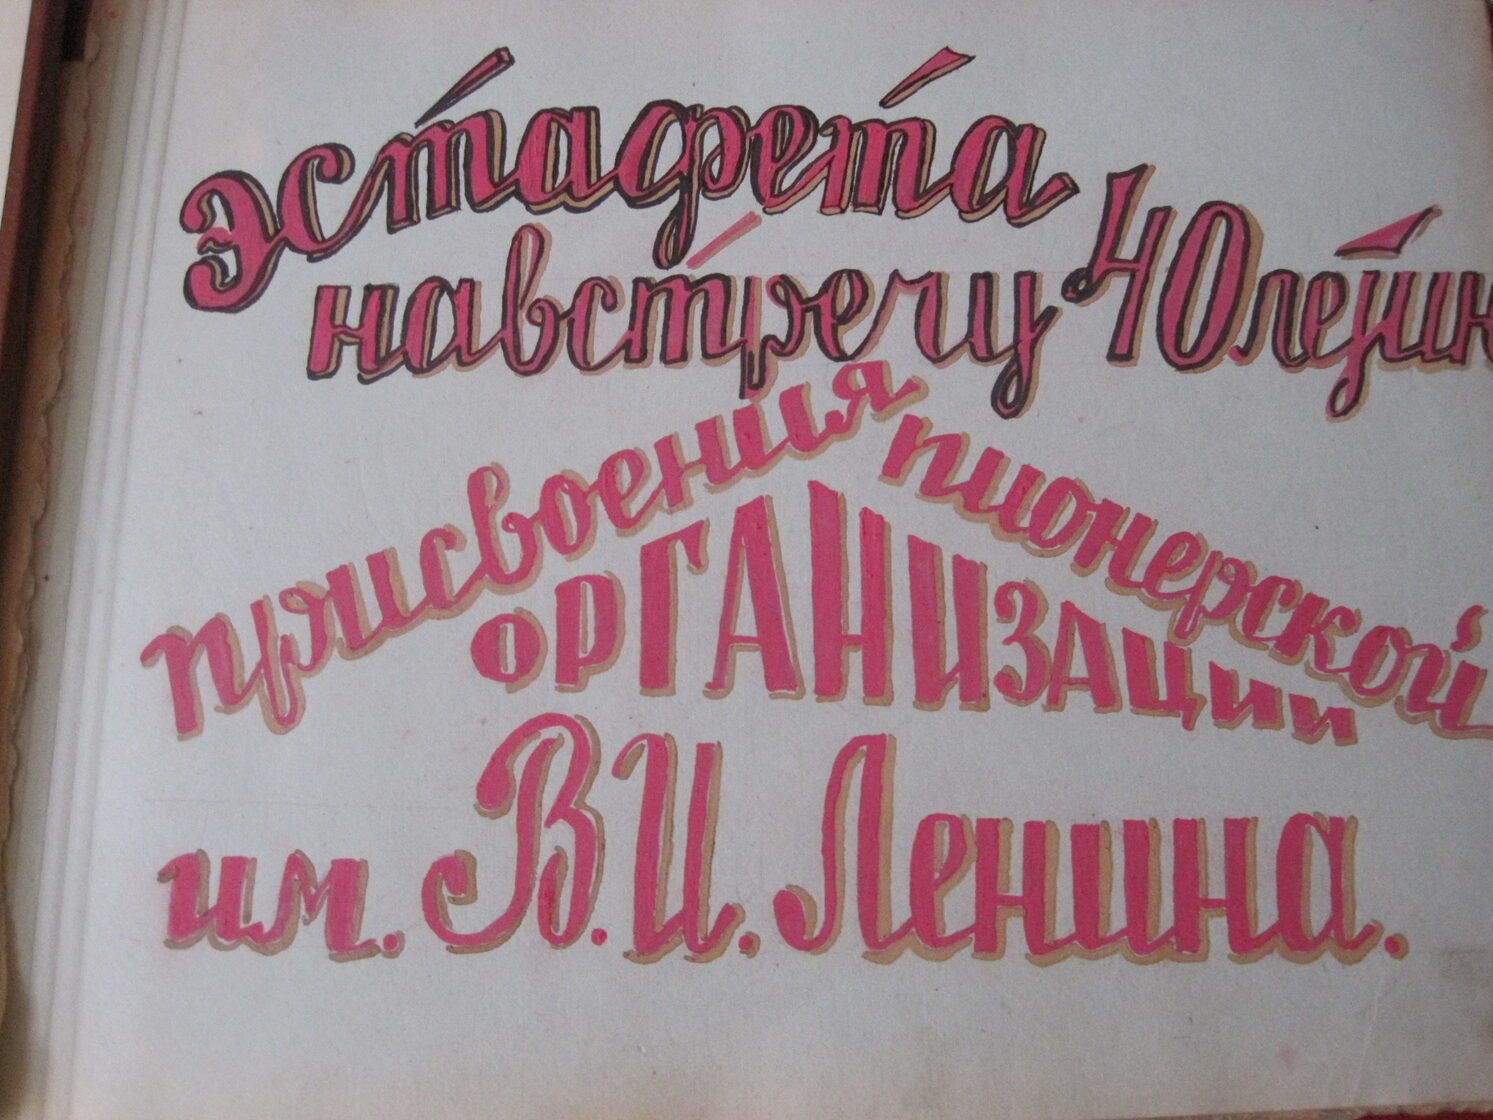 Эстафета
навстречу 40летию
присвоения пионерской
ОРГАНИЗАЦИИ
им. В.И. Ленина.